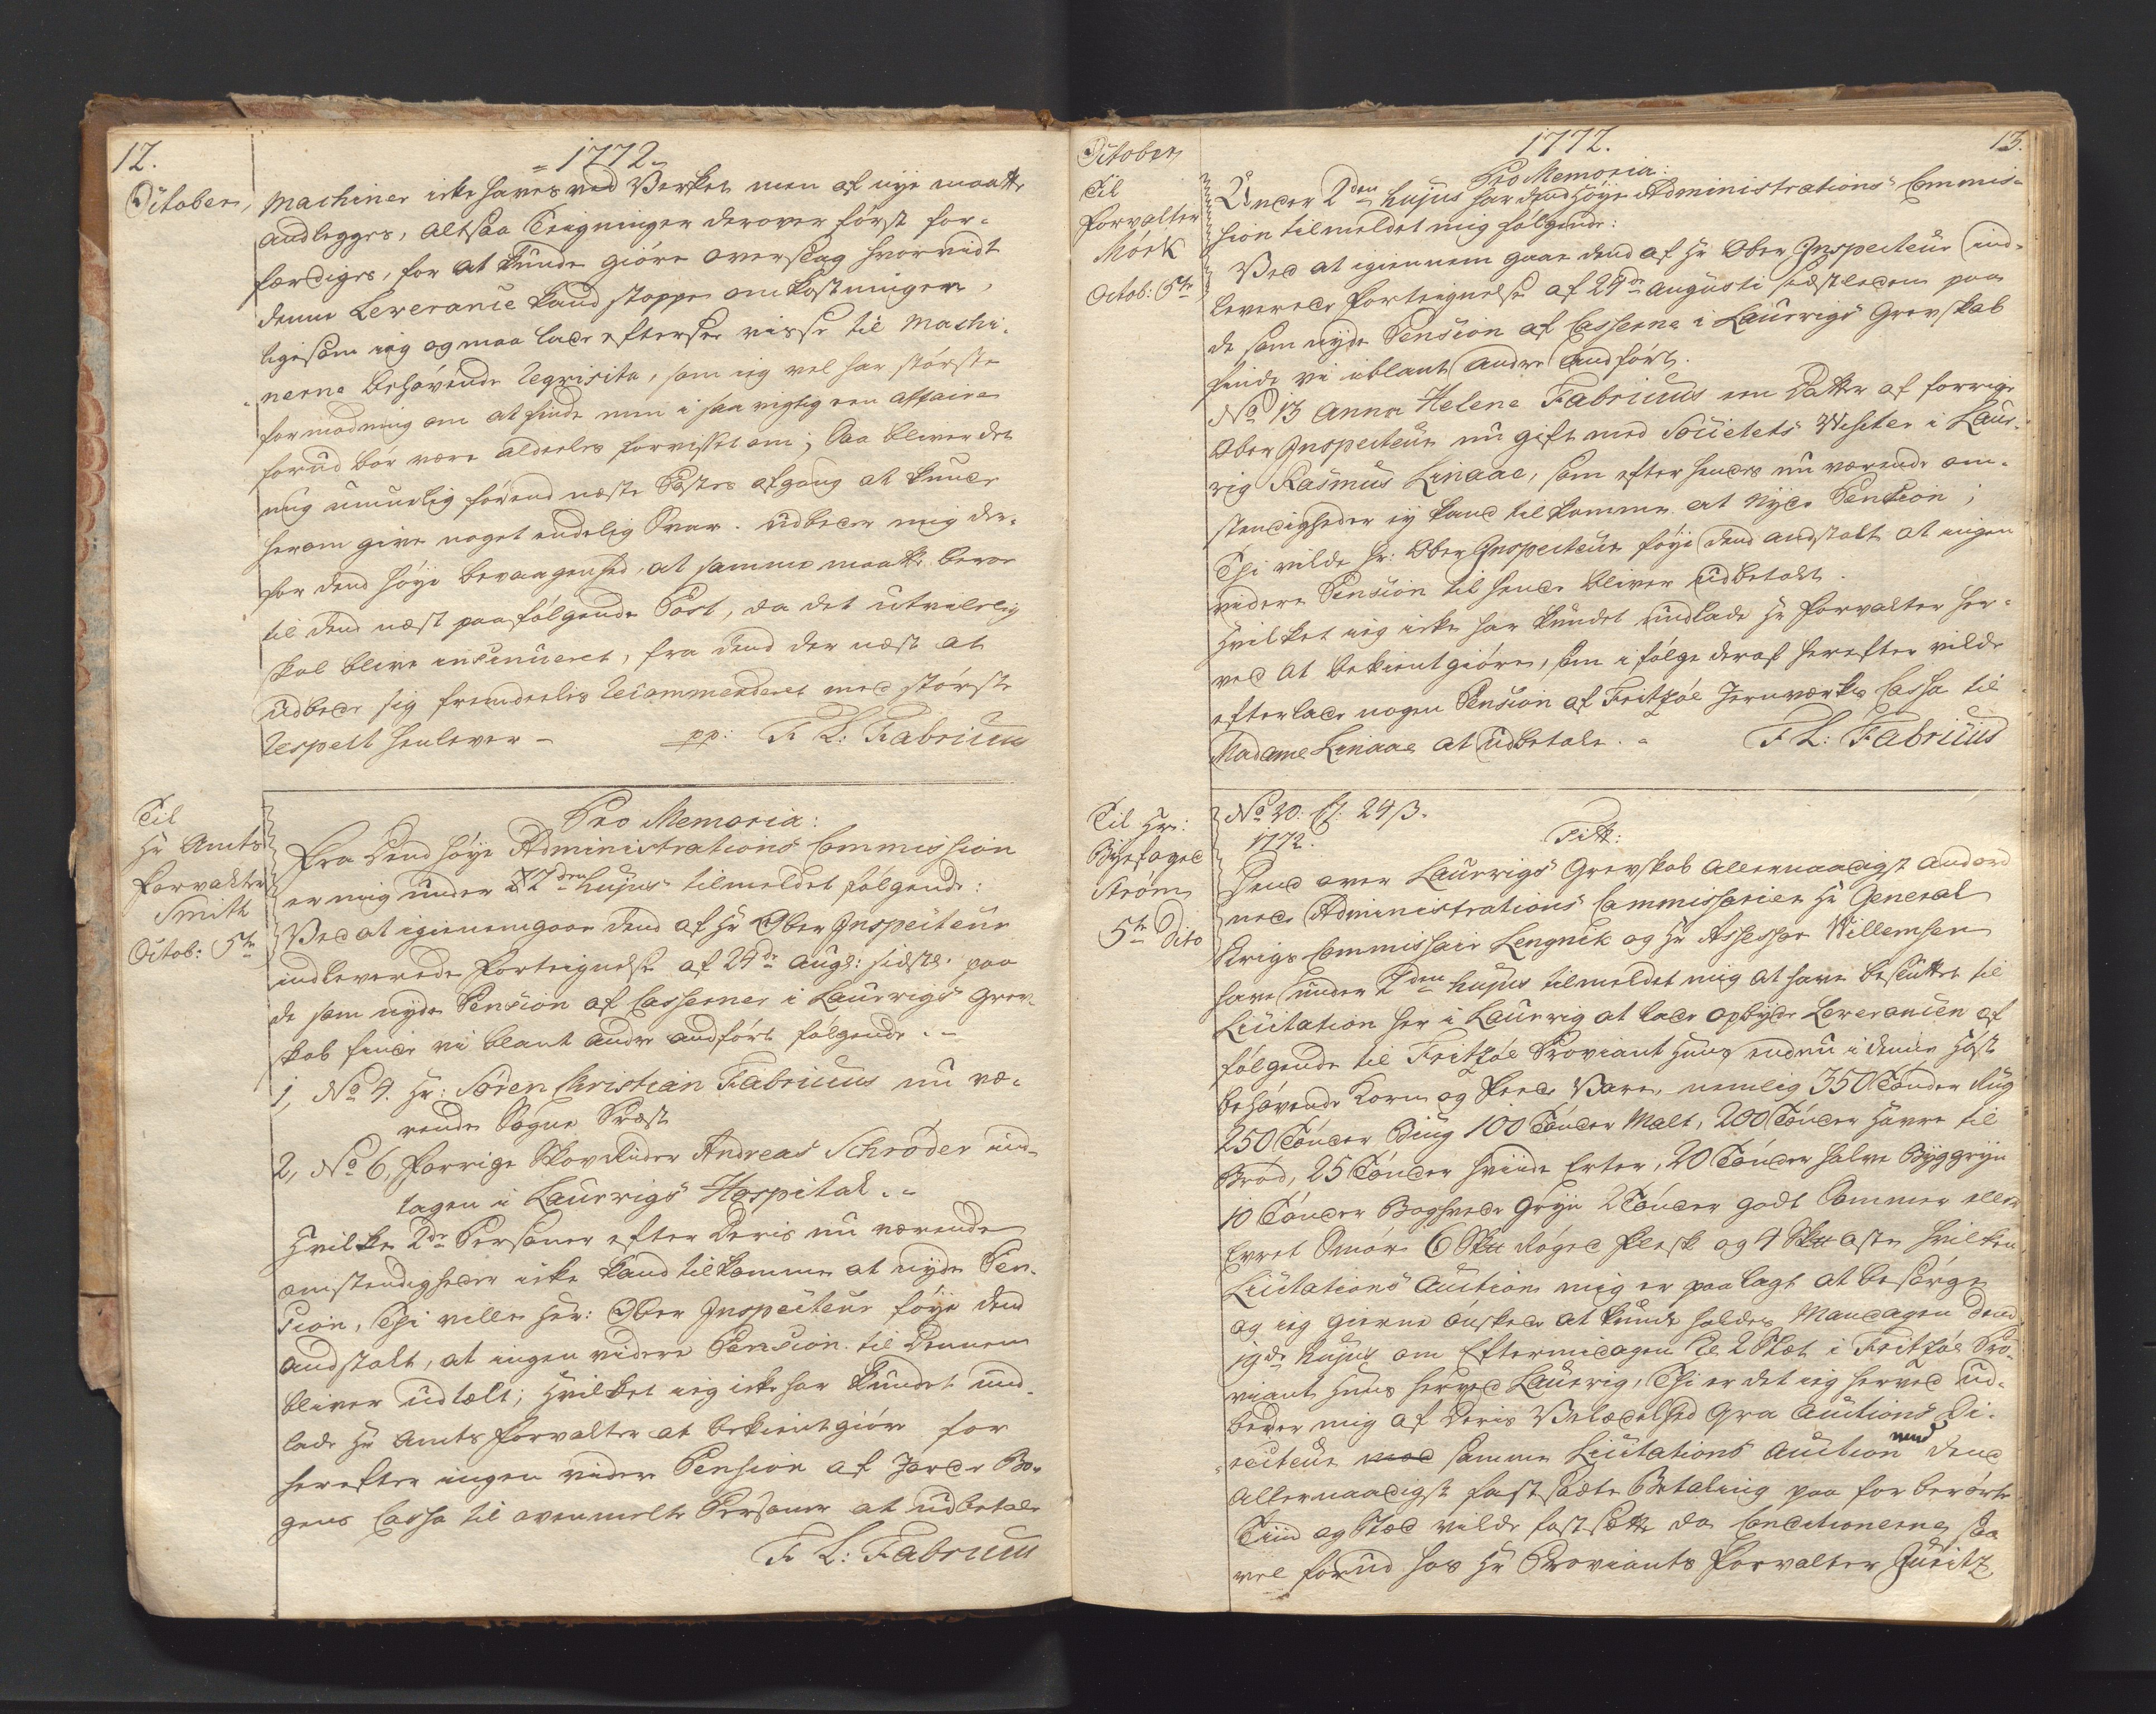 12.
= 1772.
October,
Machiner icke haves ved Verket men af nye maatte
andlegges, altsaa Teigninger derover först for-
færdiges, for at kunde giöre overslag hvorvidt
denne Leverance kand stoppe omkostningerne,
ligesom ieg og maa lade eftersee visse til Machi-
nerne behövende Reqvisita, som ieg vel har störste
formodning om at finde men i saa vigtig een affaire
forud bör være aldeeles forvisset om; Saa bliver det
mig umuelig förend næste Postes afgang at kunde
herom give noget endelig Svar. Udbeder mig der-
for dend höye bevaagenhed, at samme maatte beroe
til dend næst paafölgende Post, da det utvilelig
skal blive insinueret, fra dend der næst at
udbede sig fremdeeles Recommenderet med störste
Respect henlever –
pp: F L: Fabricius
Til
Hr Amts
Forvalter
Smith
Octob: 5te
Pro Memoria:
Fra Dend höye Administrations Commission
er mig under 2den hujus tilmeldet fölgende:
Ved at igiennemgaae dend af Hr Ober Inspecteur
indleverede Forteignelse af 24de Augs: sidstl. paa
de som nyde Pension af Casserne i Laurvigs Grev-
skab finde vi blant andre andfört fölgende. –
1, No 4. Hr: Sören Christian Fabricius nu væ-
rende Sogne Præst
2, No 6, Forrige Skov Rider Andreas Schröder ind-
tagen i Laurvigs Hospital. –
Hvilke 2de Persöner efter deris nu værende
omstendigheder icke kand tilkomme at nyde Pen-
sion, Thi ville Hr: Ober Inspecteur föye dend
andstalt, at ingen videre Pension til Dennem
bliver udtælt; Hvilket ieg icke har kundet und-
lade Hr Amts Forvalter at bekientgiöre for
herefter ingen videre Pension af Jorde Bo-
gens Cassa til ovenmelte Persöner at udbetale
F L: Fabricius
13.
1772.
October
Til
Forvalter
Mörk
Octob: 5te
Pro Memoria:
Under 2den hujus har dend höye Administrations Commis-
sion tilmeldet mig fölgende:
Ved at igiennem gaae dend af Hr Ober Inspecteur ind-
leverede Forteignelse af 24de Augusti sidstleden paa
de som nyde Pension af Casserne i Laurvigs Grevskab
finde vi iblant andre andfört.
No 13 Anna Helene Fabricius een Datter af forrige
Ober Inspecteur nu gift med Societets Visiter i Laur-
vig Rasmus Linaae, som efter hendes nu værende om-
stendigheder ey kand tilkomme at nyde Pension;
Thi vilde Hr: Ober Inspecteur föye dend andstalt at ingen
videre Pension til hende bliver udbetalt.
Hvilket ieg icke har kundet undlade Hr Forvalter her-
ved at bekientgiöre, som i fölge deraf herefter vilde
efterlade nogen Pension af Fritzöe Jernværks Cassa til
Madame Linaae at udbetale. –
F L: Fabricius
Til Hr:
Byefoged
Ström
5te Dito
No 20. Cl: 24 ß.
1772.
Titt:
Dend over Laurvigs Grevskab Allernaadigst andord
nede Administrations Commissarier Hr General
Krigs Commissair Lengnik og Hr Assessor Willemsen
have under 2den hujus tilmeldet mig at have besluttet til
Licitation her i Laurvig at lade opbyde Leverancen af
fölgende til Fritzöe Proviant Huus endnu i denne Höst
behövende Korn og Fede Vare, nemlig 350 Tönder Rug
250 Tönder Bÿg 100 Tönder Malt, 200 Tönder Havre til
Bröd, 25 Tönder hviide Erter, 20 Tönder halve Byggryn
10 Tönder Boghvede Gryn 2 Tönder godt Sommer eller
Levret Smör 6 Sk℔ Röget Flesk og 4 Sk℔ Oste hvilken
Licitations Auction mig er paalagt at besörge
og ieg gierne önskede at kunde holdes Mandagen dend
19de hujus om Eftermidagen Cl 2 Slet i Fritzöe Pro-
viant Huus herved Laurvig, Thi er det ieg herved ud-
beder mig af Deris Velædelhed qva Auctions Di-
recteur med samme Licitations Auction mod dend
Allernaadigst fastsatte Betaling paa for berörte
Tiid og Sted vilde fastsætte da Conditionerne saa
vel forud hos Hr Proviants Forvalter Juritz